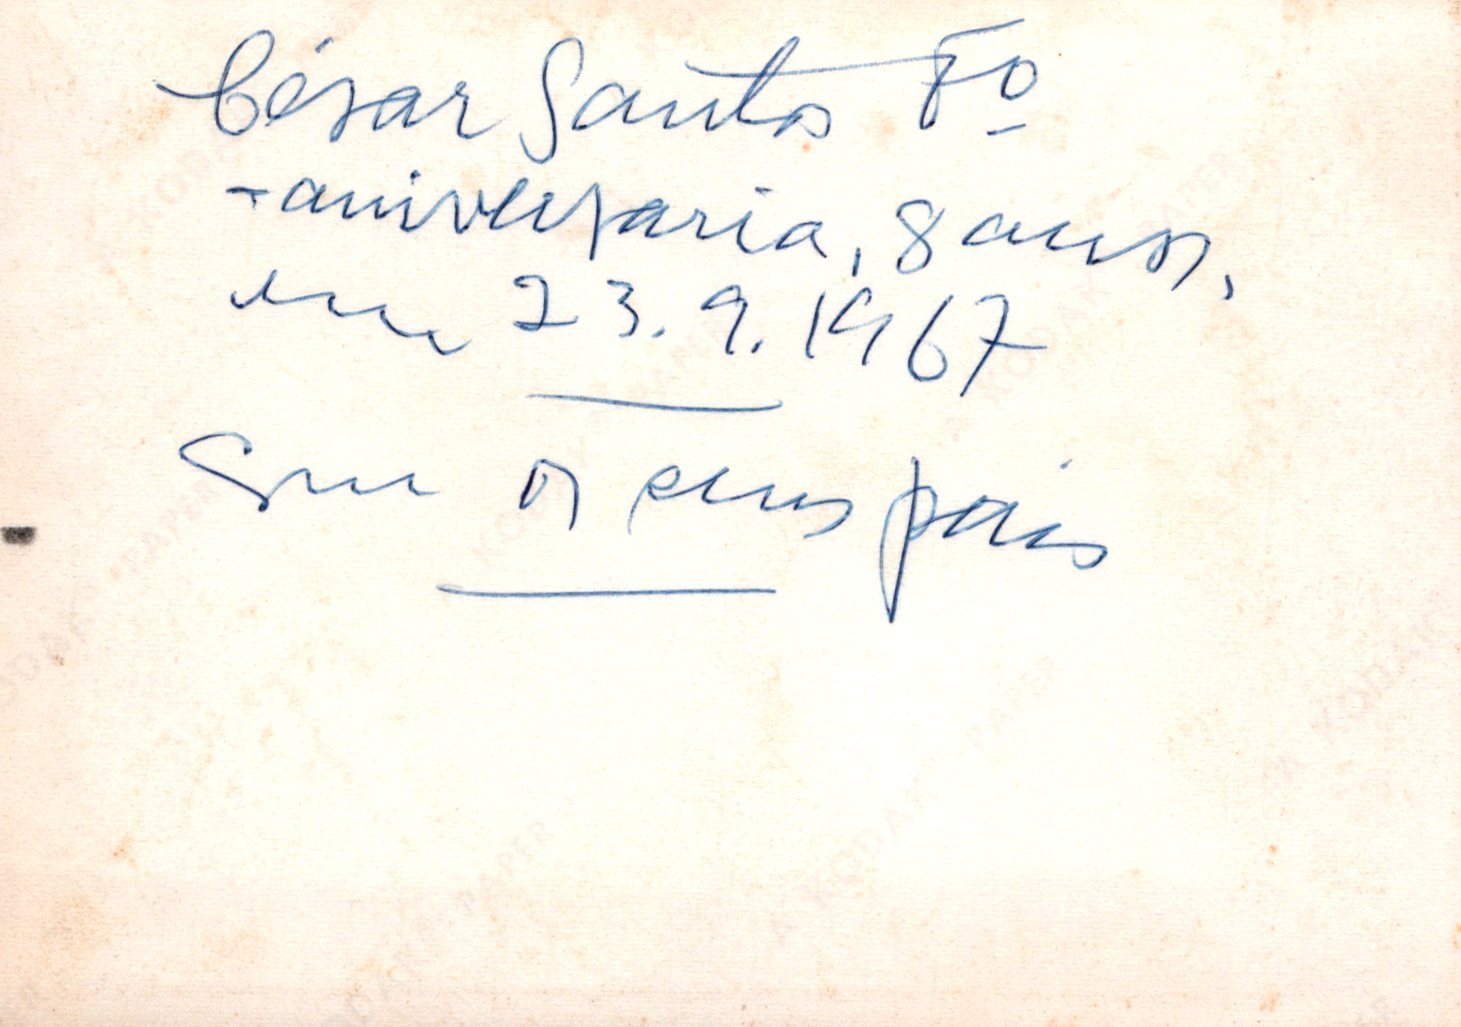 César Santos Fo
- aniversaria, 8 anos,
em 23.9.1967
Com os seus pais